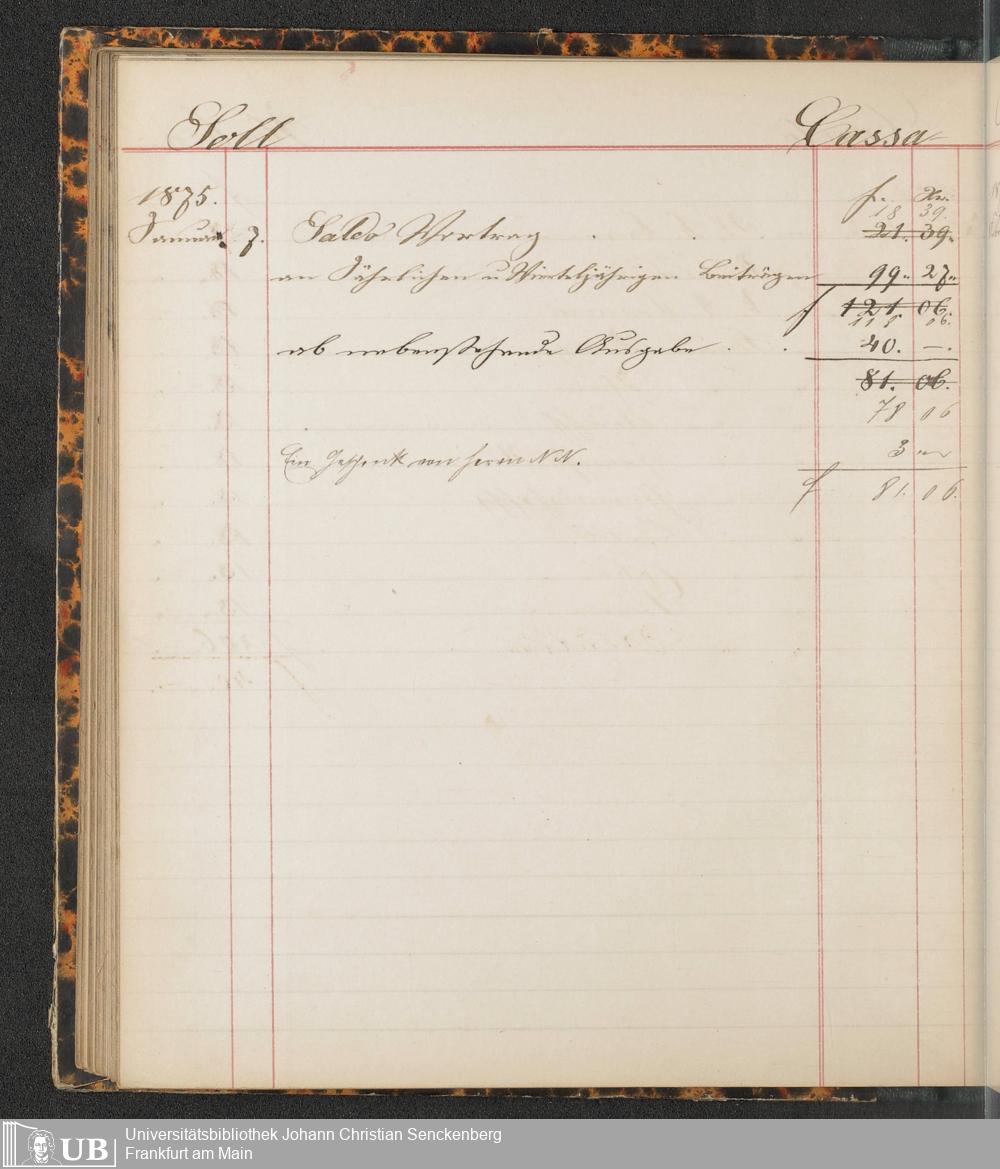 Soll Cassa
1875. f. Xr.
18 39.
Januar 7. Saldo Vortrag . . . 21. 39.
an Jährlichen u Vierteljährigen Beiträgen 99. 27.
f 121. 06.
118 06.
ab nebenstehende Ausgabe . . 40. —.
81. 06.
78 06
Ein Geschenk von Herrn N N. 3 —
f 81. 06.
UB Universitätsbibliothek Johann Christian Senckenberg
Frankfurt am Main